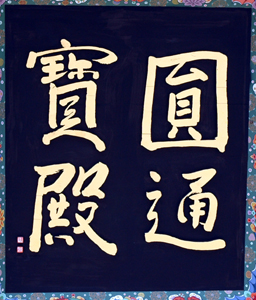 圓通
寶殿